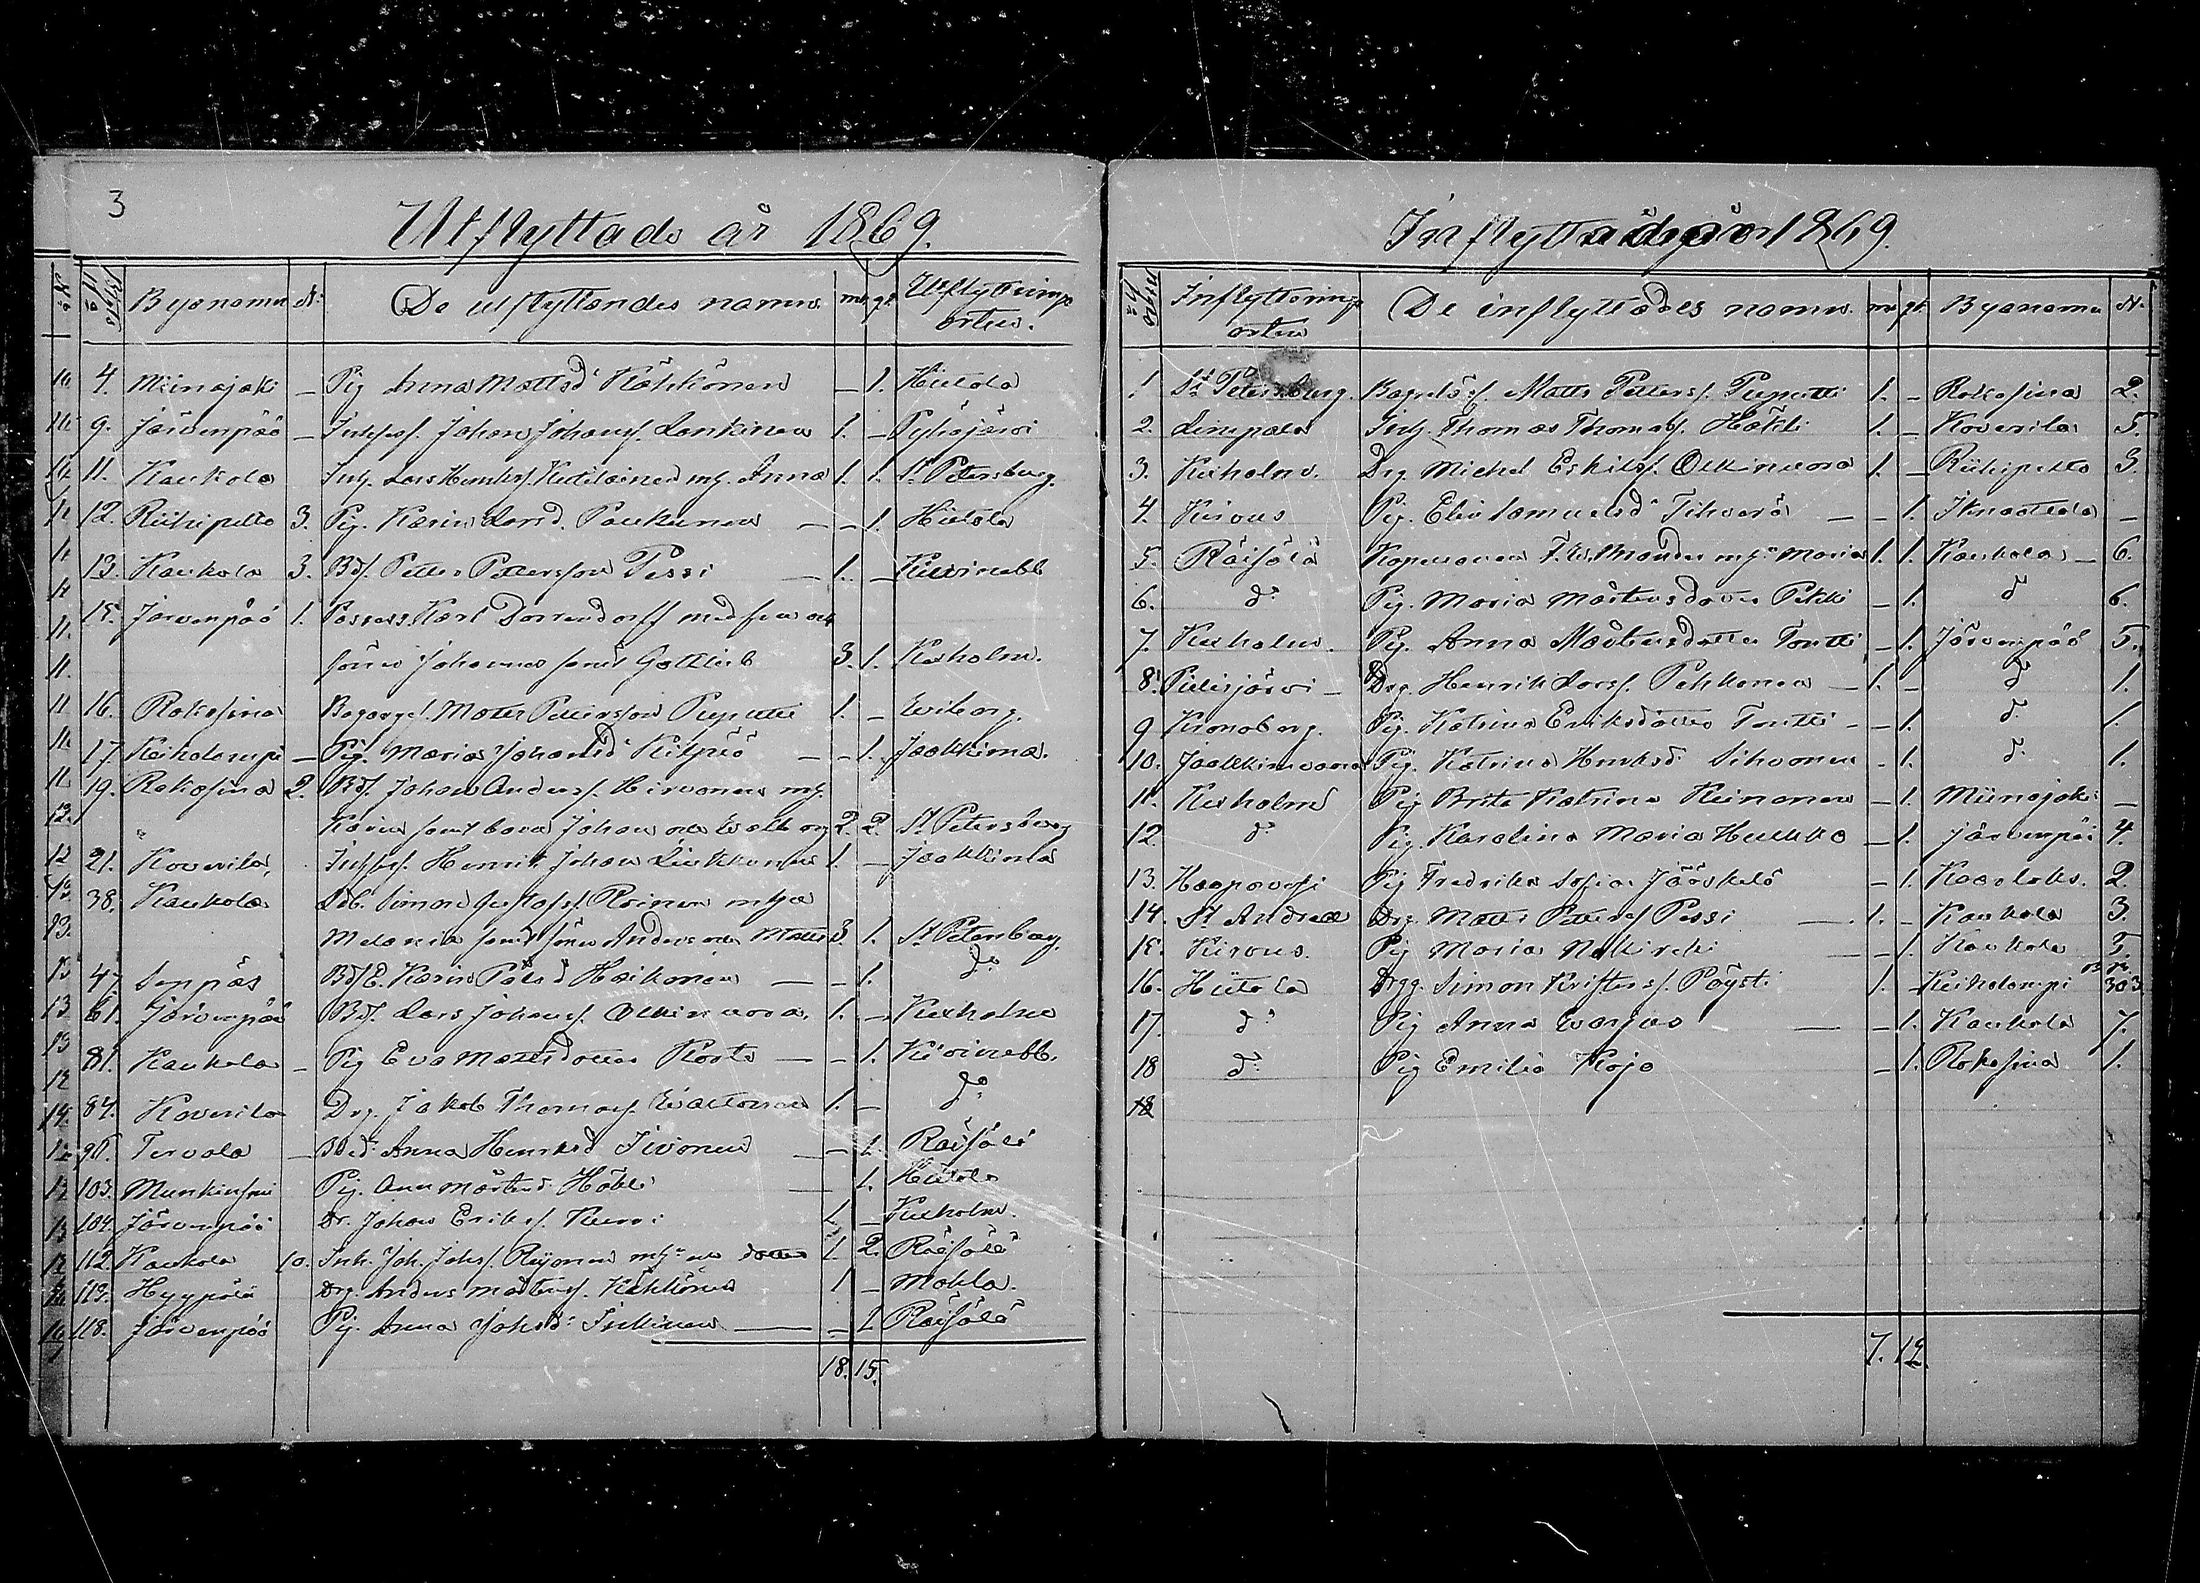 3
Utflyttade år 1869.
No Bets No Byanamn N: De utflyttandes namn. m. q. Utflyttnings orten.
4. Miinajoki – Pig Anna Mattsd Kähkönen – 1. Hiitola
9. Järvenpää – Inhses. Johan Johanss. Lankinen 1. – Pyhäjärvi
11. Kaukola Inh. Lars Henrikss. Kutilainen m. h. Anna 1. 1. St Petersburg.
12. Riihipelto 3. Pig. Karin Larsd. Paukkunen – 1. Hiitola
13. Kaukola 3. Bds. Petter Pettersson Pessi 1. – Kivinebb
15. Järvenpää 1. Possess. Karl Dorrendorff med fru och
söner Johannes samt Gottlieb 3. 1. Kexholm.
16. Rokosina Bagareges. Matts Pettersson Pieputti 1. – Wiborg.
17. Keiholampi – Pig. Maria Johansd Kitpiä – 1. Jaakkima.
19. Rokosina 2. Bds. Johan Anderss. Hirvonen m. h.
Karin samt barn Johan och Walborg 2. 2. St Petersburg
21. Koverila, Inhses. Henrik Johan Liukkonen 1. – Jaakkima
38. Kaukola Ldb. Simon Gustafss. Roinen m hu
Melania samt söner Anders och Matts 3. 1. St Petersburg.
47. Sonpäs Bds E. Karin Pålsd Haikonen – 1. do
61. Järvenpää Bds. Lars Johanss. Ollinvora. 1. – Kexholm
81. Kaukola – Pig Eva Mattsdotter Kosto – 1. Kivinebb.
84. Koverila Drg. Jakob Thomass. Waltonen 1. – do
90. Tervola – Bdsd: Anna Henriksd Sivonen – 1. Räisälä
103. Munkinsaari Pig. Ann Mårtensd Häkli 1. Hiitola
104. Järvenpää Dr. Johan Erikss. Kurri 1. – Kexholm.
112. Kaukola 10. Inh. Joh. Johss. Reijonen m h: och dotter 1. 2. Räisälä
113. Hyypölä Drg. Anders Mårtenss. Kähkönen 1 – Mohla.
118. Järvenpää Pig. Anna Johsd: Inkinen – 1. Räisälä
18. 15.
Inflyttade år 1869.
No Inflyttnings orten De inflyttades namn. m. q. Byanamn N:
1 St Petersburg. Bagrelös. Matts Petterss. Pieputti 1. – Rokosina 2.
2. Lempala Inh. Thomas Thomass. Häkli 1. – Koverila 5.
3. Kexholm. Drg. Michel Eskilss. Ollinvora 1. – Riihipelto 3.
4. Kirvus Pig. Elin Samuelsd Tihverä – 1. Ikmaattala –
5. Räisälä Kopvaren F. W. Thander m h: Maria 1. 1. Kaukola – 6.
6. do Pig. Maria Mårtensdotter Pekki – 1. do 6.
7. Kexholm. Pig. Anna Mårtensdotter Tontti – 1. Järvenpää 5.
8. Pielisjärvi – Drg. Henrik Larss. Pehkonen – 1. – do 1.
9 Kronoborg. Pig. Katrina Eriksdotter Tontti – 1. do. 1.
10. Jaakkimvaara Pig. Katrina Henriksd Sihvonen – 1. do 1.
11. Kexholm Pig Brita Katrina Keinonen – 1. Miinajoki –
12. do Pig. Karolina Maria Hukka – 1. Järvenpää 4.
13. Haapavesi Pig Fredrika Sofia Jääskelä – 1. Kaukola. 2.
14. St Andreæ Drg. Matts Petterss Pessi 1. – Kaukola 3.
15. Kirvus. Pig Maria Nokireki – 1. Kaukola 5.
16. Hiitola Drgg. Simon Kristerss. Pöysti 1. – Keiholampi 3
17. do Pig Anna Warjus – 1. Kaukola 7.
18 do Pig Emilia Kojo – 1. Rokosina 1.
18
7. 12.